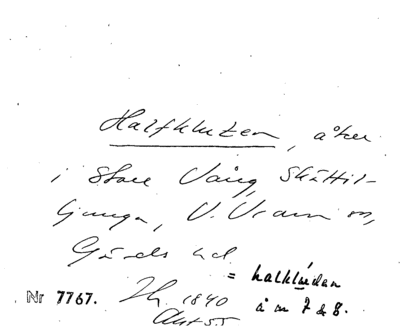 Halfkluten, åker
i Store Vång, Skättil-
ljunga, V. Vram sn,
Gärds hd
= halkluden
Nr 7767. 1840 å nr 7 & 8.
Akt 55